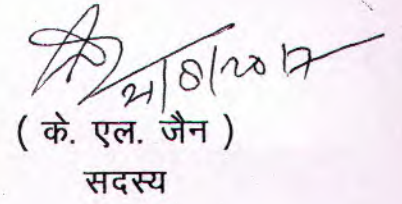 /8/2017
( के. एल. जैन )
सदस्य